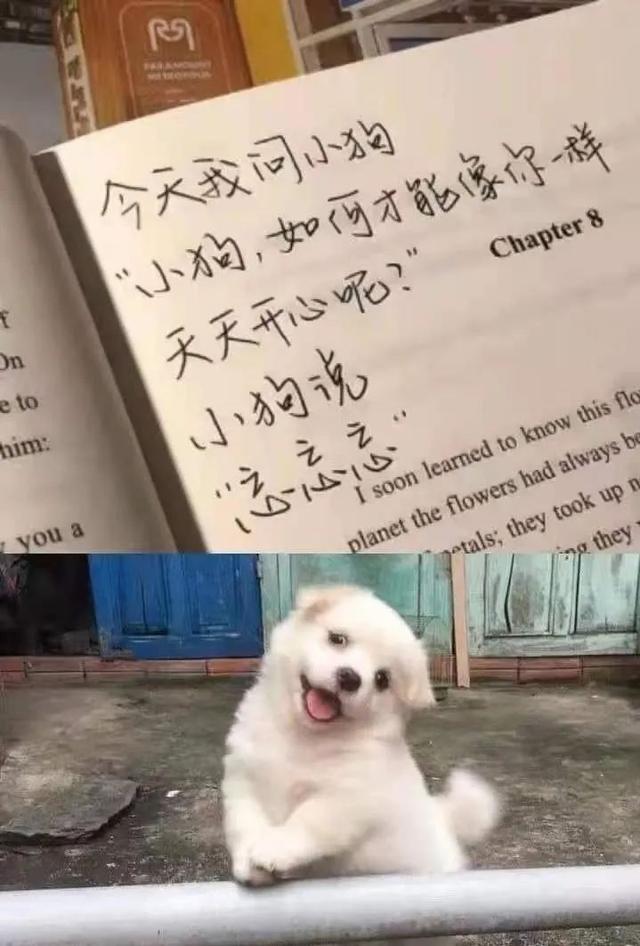 PARAMOUNT
今天我问小狗
"小狗,如何才能像你一样
天天开心呢?"
小狗说
"忘忘忘"
Chapter 8
On
e to
him:
you a
I soon learned to know this flo
planet the flowers had always be
etals; they took up n
ng they